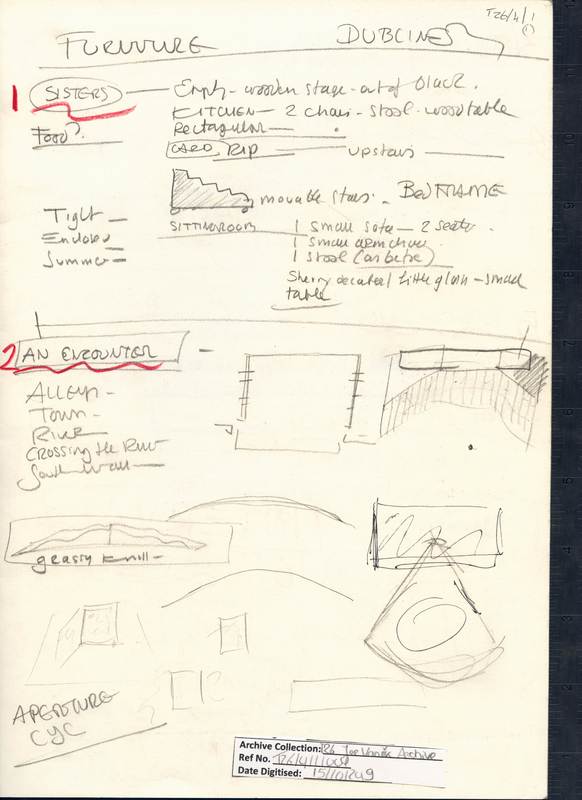 T26/4/1
(1)
FURNITURE DUBLINERS
1 SISTERS — Empty - wooden stage - out of black.
KITCHEN — 2 chairs - stool - wood table
Food? Rectangular —
CARD, RIP — upstairs —
movable stairs. BED FRAME
Tight —
SITTINGROOM 1 small sofa — 2 seater.
Enclosed 1 small armchair.
Summer — 1 stool (as before)
Sherry decanter / little glass - small
table
2 AN ENCOUNTER —
Alleys -
Town -
River
CROSSING the River
South Wall —
grassy knoll -
APERTURE
CYC
Archive Collection: Joe Vanek Archive
Ref No.
Date Digitised: